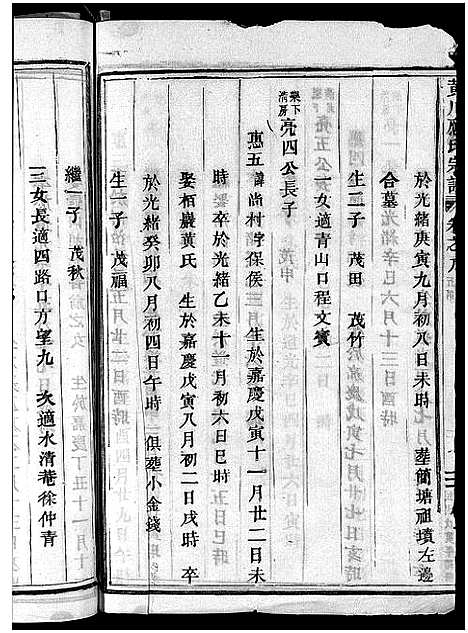 於光緒庚寅九月初八日未時 葬簡塘祖墳左邊
合墓
生二子 茂田 茂竹
一女適青山口程文賓
樂下清房 亮四公長子
惠五 諱尚村字保侯 生於嘉慶戊寅十一月廿二日未
時 卒於光緒乙未十一月初六日巳時
娶栢巖黃氏 生於嘉慶戊寅八月初二日戌時 卒
於光緒癸卯八月初四日午時 俱葬小金錢
生一子 茂福
繼一子 茂秋
三女長適四路口方望九 次適水清菴徐仲青